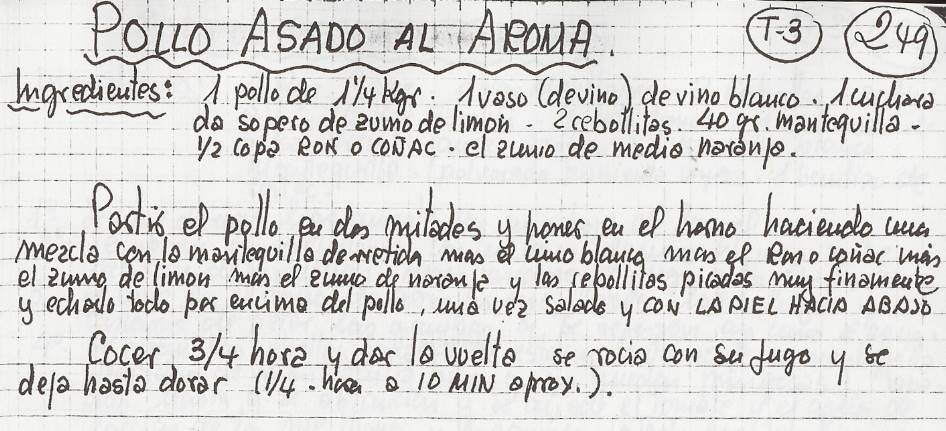 POLLO ASADO AL AROMA. T-3 249
Ingredientes: 1 pollo de 1 1/4 Kgr. 1 vaso (de vino) de vino blanco. 1 cuchara
da sopero de zumo de limon - 2 cebollitas. 40 gr. mantequilla -
1/2 copa RON O COÑAC. el zumo de medio naranja.
Partir el pollo en dos mitades y poner en el horno haciendo una
mezcla con la mantequilla derretida mas el vino blanco mas el Ron o coñac más
el zumo de limon mas el zumo de naranja y las cebollitas picadas muy finamente
y echarlo todo por encima del pollo, una vez salado y CON LA PIEL HACIA ABAJO
Cocer 3/4 hora y dar la vuelta se rocia con su jugo y se
deja hasta dorar (1/4 . hora o 10 MIN aprox.).